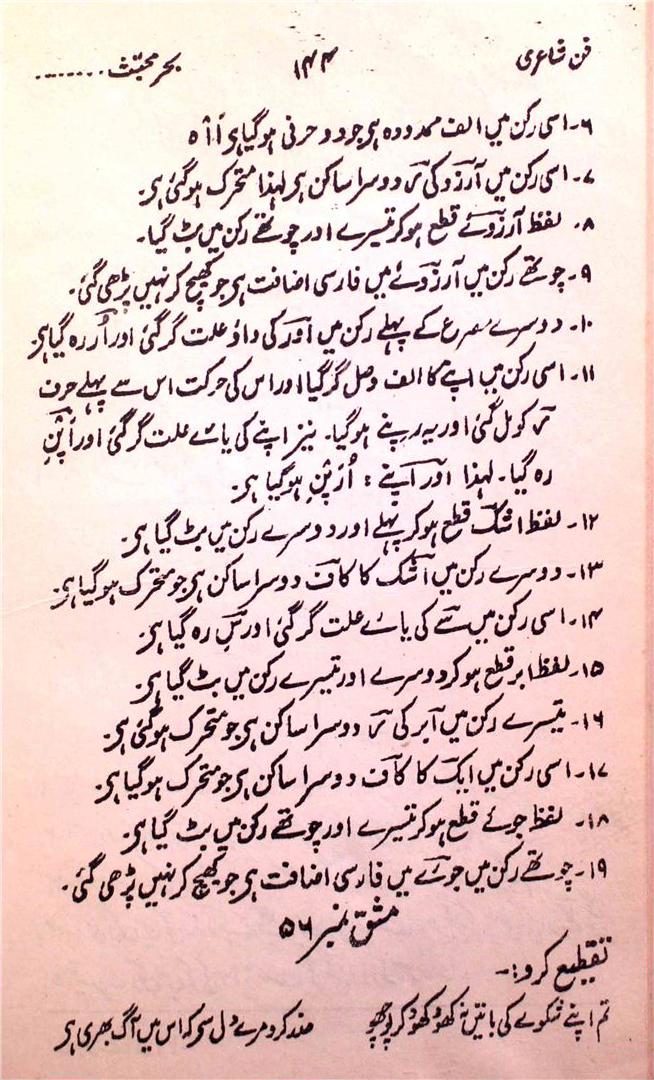 فن شاعری ۱۴۴ بحر مجتث ........
۶۔ اسی رکن میں الف ممدودہ ہے جو دو حرفی ہو گیا ہے أاْ ہ
۷۔ اسی رکن میں آرزو کی ر دوسرا ساکن ہے لہذا متحرک ہو گئی ہے۔
۸۔ لفظ آرزوئے قطع ہو کر تیسرے اور چوتھے رکن میں بٹ گیا۔
۹۔ چوتھے رکن میں آرزوئے میں فارسی اضافت ہے جو کھینچ کر نہیں پڑھی گئی۔
۱۰۔ دوسرے مصرع کے پہلے رکن میں اور کی واو علت گر گئی اور اُر رہ گیا ہے۔
۱۱۔ اسی رکن میں اپنے کا الف وصل گر گیا اور اس کی حرکت اس سے پہلے حرف
ر کو مل گئی اور یہ رپنے ہو گیا۔ نیز اپنے کی یائے علت گر گئی اور اَپنِ
رہ گیا۔ لہذا اور اپنے : اُرَپنِ ہو گیا ہے۔
۱۲۔ لفظ اشک قطع ہو کر پہلے اور دوسرے رکن میں بٹ گیا ہے۔
۱۳۔ دوسرے رکن میں اشک کا کاف دوسرا ساکن ہے جو متحرک ہو گیا ہے۔
۱۴۔ اسی رکن میں سے کی یائے علت گر گئی اور سِ رہ گیا ہے۔
۱۵۔ لفظ ابر قطع ہو کر دوسرے اور تیسرے رکن میں بٹ گیا ہے۔
۱۶۔ تیسرے رکن میں ابر کی ر دوسرا ساکن ہے جو متحرک ہو گئی ہے۔
۱۷۔ اسی رکن میں ایک کا کاف دوسرا ساکن ہے جو متحرک ہو گیا ہے۔
۱۸۔ لفظ جوئے قطع ہو کر تیسرے اور چوتھے رکن میں بٹ گیا ہے۔
۱۹۔ چوتھے رکن میں جوئے میں فارسی اضافت ہے جو کھینچ کر نہیں پڑھی گئی۔
مشق نمبر ۵۶
تقطیع کرو :۔
تم اپنے شکوے کی باتیں نہ کھود کھود کر پوچھو حذر کرو مرے دل سے کہ اس میں آگ بھری ہے